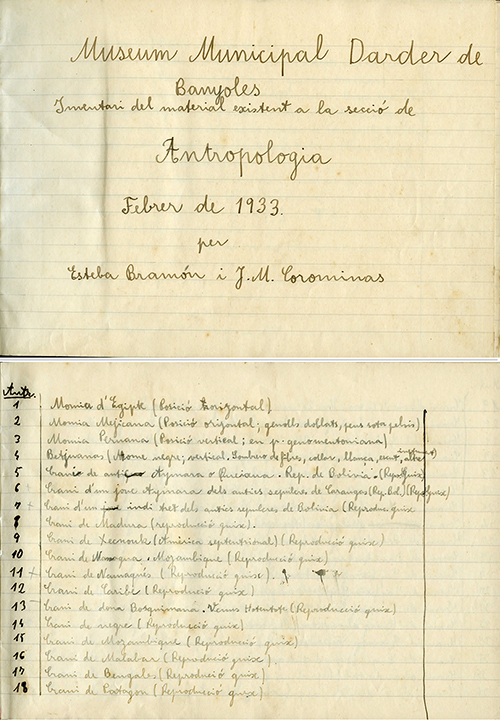 Museum Municipal Darder de
Banyoles
Inventari del material existent a la secció de
Antropologia
Febrer de 1933.
per
Esteba Bramón i J.M. Corominas
Antr.
1 Momia d'Egipte (Posició horizontal)
2 Momia Mejicana (Posició orizontal; genolls doblats, peus sota pelvis)
3 Momia Peruana (Posició vertical; en p. genomentoniana)
4 (Home negre; vertical. de fibres, collar, llança,
5 Crani de antic Aymara o . Rep. de Bolivia. (Rep. Guix)
6 Crani d'un jove Aymara dels antics sepulcres de Caranges (Rep. Bol.) (Rep. Guix)
7 + Crani d'un indi tret dels antics sepulcres de Bolivia (Reproduc. guix
8 Crani de Madura. (reproducció guix).
9 Crani de (America septentrional) (Reproducció guix)
10 Crani de . Mozambique (Reproducció guix)
11 + Crani de (Reproducció guix).
12 Crani de Caribe (Reproducció guix)
13 Crani de dona Bosquimana. Venus Hotentote (Reproducció guix)
14 Crani de negre (Reproducció guix)
15 Crani de Mozambique (Reproducció guix)
16 Crani de Malabar (Reproducció guix).
17 Crani de Bengales (Reproducció guix)
18 Crani de Patagon (Reproducció guix)